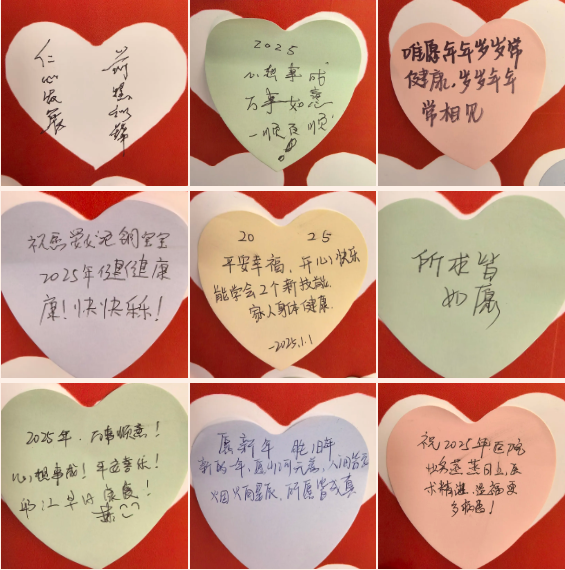 仁心发展
前程似锦
2025
心想事成
万事如意
一顺百顺!
唯愿年年岁岁常
健康,岁岁年年
常相见
2025年健健康
康!快快乐乐!
20 25
平安幸福,开心快乐
能学会2个新技能
家人身体健康
-2025.1.1
所求皆
如愿
2025年,万事顺意!
心想事成!平安喜乐!
早日康复!
愿新年 胜旧年
新的一年,愿山河无恙,人间皆安
烟火向星辰,所愿皆成真
祝2025年医院
业务蒸蒸日上,医
术精进,